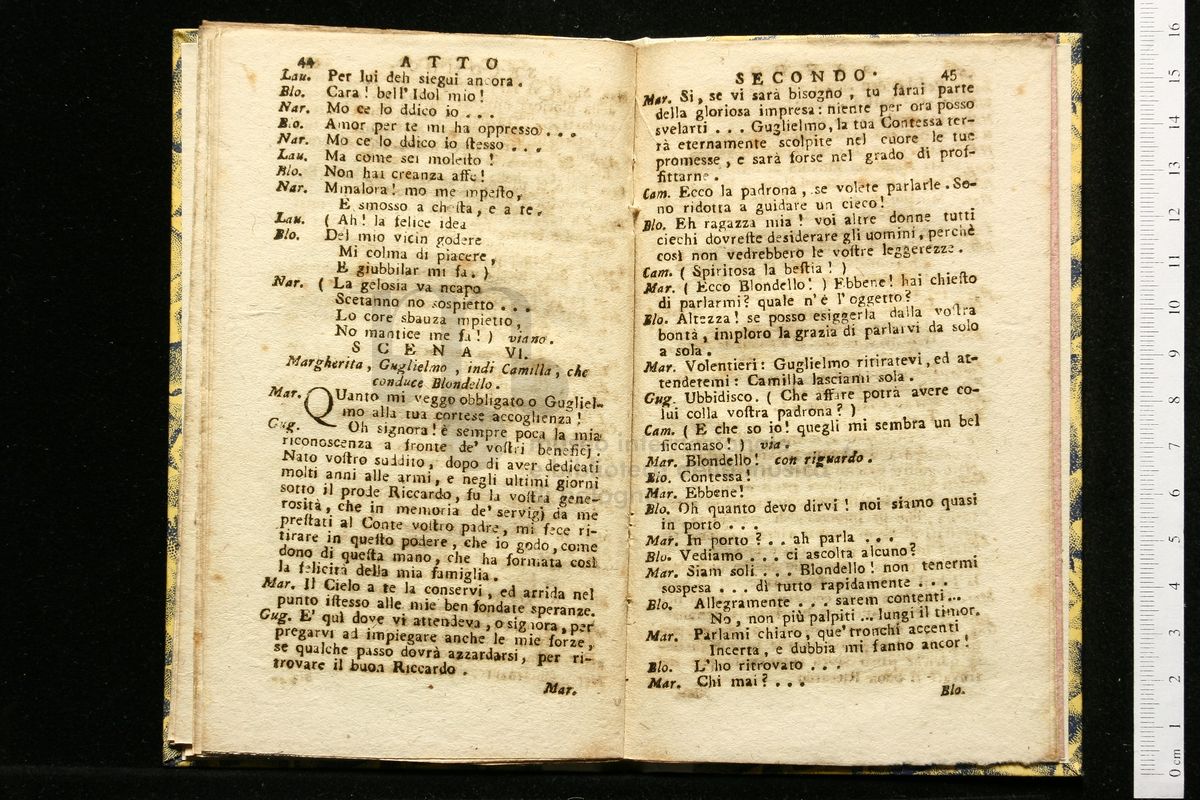 44 ATTO
Lau. Per lui deh siegui ancora.
Blo. Cara! bell' Idol mio!
Nar. Mo ce lo ddico io ...
Blo. Amor per te mi ha oppresso ...
Nar. Mo ce lo ddico io ſteſſo ...
Lau. Ma come sei moleſto!
Blo. Non hai creanza affe!
Nar. Mmalora! mo me mpeſto,
E smosso a cheſta, e a te.
Lau. ( Ah! la felice idea
Blo. Del mio vicin godere
Mi colma di piacere,
E giubbilar mi fa. )
Nar. ( La gelosia va ncapo
Scetanno no sospietto ...
Lo core sbauza mpietto,
No mantice me fa! ) via no.
SCENA VI.
Margherita, Guglielmo, indi Camilla, che
conduce Blondello.
Mar. QUanto mi veggo obbligato o Gugliel-
mo alla tua cortese accoglienza!
Gug. Oh signora! è sempre poca la mia
riconoscenza a fronte de' voſtri beneficj.
Nato voſtro suddito, dopo di aver dedicati
molti anni alle armi, e negli ultimi giorni
sotto il prode Riccardo, fu la voſtra gene-
rosità, che in memoria de' servigj da me
preſtati al Conte voſtro padre, mi fece ri-
tirare in queſto podere, che io godo, come
dono di queſta mano, che ha formata così
la felicità della mia famiglia.
Mar. Il Cielo a te la conservi, ed arrida nel
punto iſtesso alle mie ben fondate speranze.
Gug. E' quì dove vi attendeva, o signora, per
pregarvi ad impiegare anche le mie forze,
se qualche passo dovrà azzardarsi, per ri-
trovare il buon Riccardo.
Mar.
SECONDO. 45
Mar. Si, se vi sarà bisogno, tu farai parte
della gloriosa impresa: niente per ora posso
svelarti ... Guglielmo, la tua Contessa ter-
rà eternamente scolpite nel cuore le tue
promesse, e sarà forse nel grado di prof-
fittarne.
Cam. Ecco la padrona, se volete parlarle. So-
no ridotta a guidare un cieco!
Blo. Eh ragazza mia! voi altre donne tutti
ciechi dovreſte desiderare gli uomini, perchè
così non vedrebbero le voſtre leggerezze.
Cam. ( Spiritosa la beſtia! )
Mar. ( Ecco Blondello! ) Ebbene! hai chieſto
di parlarmi? quale n'è l'oggetto?
Blo. Altezza! se posso esiggerla dalla voſtra
bontà, imploro la grazia di parlarvi da solo
a sola.
Mar. Volentieri: Guglielmo ritiratevi, ed at-
tendetemi: Camilla lasciami sola.
Gug. Ubbidisco. ( Che affare potrà avere co-
lui colla voſtra padrona? )
Cam. ( E che so io! quegli mi sembra un bel
ficcanaso! ) via.
Mar. Blondello! con riguardo.
Blo. Contessa!
Mar. Ebbene!
Blo. Oh quanto devo dirvi! noi siamo quasi
in porto ...
Mar. In porto? .. ah parla ...
Blo. Vediamo ... ci ascolta alcuno?
Mar. Siam soli ... Blondello! non tenermi
sospesa ... dì tutto rapidamente ...
Blo. Allegramente ... sarem contenti ...
No, non più palpiti ... lungi il timor.
Mar. Parlami chiaro, que' tronchi accenti
Incerta, e dubbia mi fanno ancor!
Blo. L'ho ritrovato ...
Mar. Chi mai? ...
Blo.
0 cm 1 2 3 4 5 6 7 8 9 10 11 12 13 14 15 16